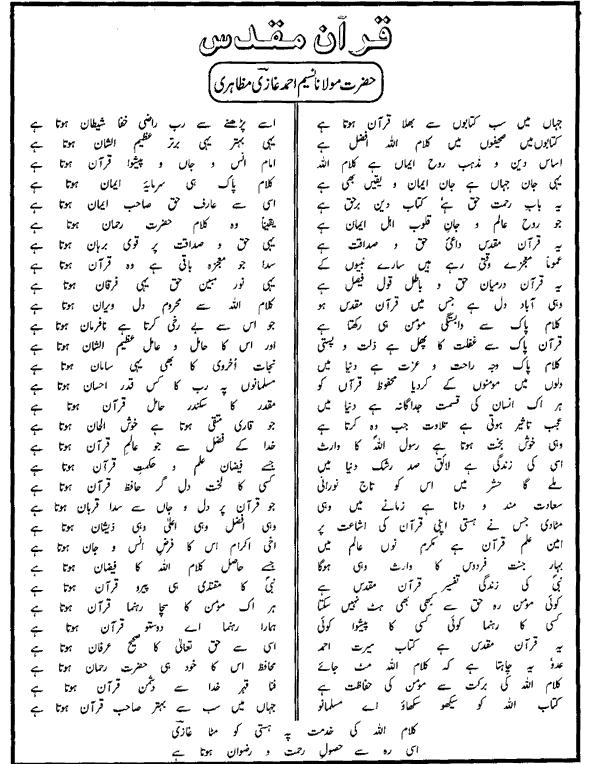 قرآن مقدس
حضرت مولانا نسیم احمد غازی مظاہری
جہاں میں سب کتابوں سے بھلا قرآن ہوتا ہے اسے پڑھنے سے رب راضی خفا شیطان ہوتا ہے
کتابوں میں صحیفوں میں کلام اللہ افضل ہے یہی بہتر یہی برتر عظیم الشان ہوتا ہے
اساس دین و مذہب روح ایماں ہے کلام اللہ امام انس و جاں و پیشوا قرآن ہوتا ہے
یہی جان جہاں ہے جان ایمان و یقیں بھی ہے کلام پاک ہی سرمایۂ ایمان ہوتا ہے
یہ باب رحمت حق ہے کتاب دین برحق ہے اسی سے عارف حق صاحب ایمان ہوتا ہے
جو روح عالم و جان قلوب اہل ایماں ہے یقیناً وہ کلام حضرت رحمان ہوتا ہے
یہ قرآن مقدس داعیٔ حق و صداقت ہے یہی حق و صداقت پر قوی برہان ہوتا ہے
عموماً معجزے وقتی رہے ہیں سارے نبیوں کے سدا جو معجزہ باقی ہے وہ قرآن ہوتا ہے
یہ قرآن درمیان حق و باطل قول فیصل ہے یہی نور مبین حق یہی فرقان ہوتا ہے
وہی آباد دل ہے جس میں قرآن مقدس ہو کلام اللہ سے محروم دل ویران ہوتا ہے
کلام پاک سے وابستگی مؤمن ہی رکھتا ہے جو اس سے بے رخی کرتا ہے نافرمان ہوتا ہے
قرآن پاک سے غفلت کا پھل ہے ذلت و پستی اور اس کا حامل و عامل عظیم الشان ہوتا ہے
کلام پاک وجہ راحت و عزت ہے دنیا میں نجات اُخروی کا بھی یہی سامان ہوتا ہے
دلوں میں مؤمنوں کے کردیا محفوظ قرآں کو مسلمانوں پہ رب کا کس قدر احسان ہوتا ہے
ہر اک انسان کی قسمت جداگانہ ہے دنیا میں مقدر کا سکندر حامل قرآن ہوتا ہے
عجب تاثیر ہوتی ہے تلاوت جب وہ کرتا ہے جو قاری متقی ہوتا ہے خوش الحان ہوتا ہے
وہی خوش بخت ہوتا ہے رسول اللہؐ کا وارث خدا کے فضل سے جو عالم قرآن ہوتا ہے
اسی کی زندگی ہے لائق صد رشک دنیا میں جسے فیضان علم و حکمت قرآن ہوتا ہے
ملے گا حشر میں اس کو تاج نورانی کسی کا لخت دل گر حافظ قرآن ہوتا ہے
سعادت مند و دانا ہے زمانے میں وہی جو قرآن پر دل و جاں سے سدا قربان ہوتا ہے
مٹادی جس نے ہستی اپنی قرآن کی اشاعت پر وہی افضل وہی اعلیٰ وہی ذیشان ہوتا ہے
امین علم قرآن ہے مکرم نوں عالم میں اکرام اس کا فرض انس و جان ہوتا ہے
بہار جنت فردوس کا وارث وہی ہوگا جسے حاصل کلام اللہ کا فیضان ہوتا ہے
نبیؐ کی زندگی تفسیر قرآن مقدس ہے نبیؐ کا مقتدی ہی پیرو قرآن ہوتا ہے
کوئی مؤمن رہ حق سے کبھی بھی ہٹ نہیں سکتا ہر اک مؤمن کا سچا رہنما قرآن ہوتا ہے
کسی کا رہنما کوئی کسی کا پیشوا کوئی ہمارا رہنما اے دوستو قرآن ہوتا ہے
یہ قرآن مقدس ہے کتاب سیرت احمد اسی سے حق تعالیٰ کا صحیح عرفان ہوتا ہے
عدو یہ چاہتا ہے کہ کلام اللہ مٹ جائے محافظ اس کا خود ہی حضرت رحمان ہوتا ہے
کلام اللہ کی برکت سے مؤمن کی حفاظت ہے فنا قہر خدا سے دشمن قرآن ہوتا ہے
کتاب اللہ کو سیکھو سکھاؤ اے مسلمانو جہاں میں سب سے بہتر صاحب قرآن ہوتا ہے
کلام اللہ کی خدمت پہ ہستی کو مٹا غازی
اسی رہ سے حصول رحمت و رضوان ہوتا ہے